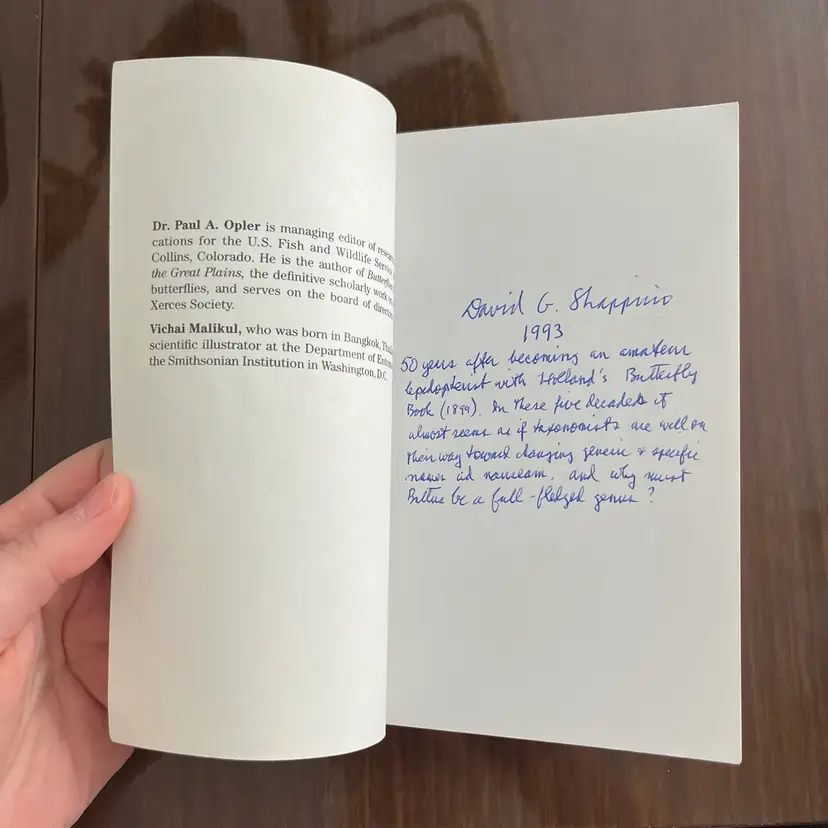 Dr. Paul A. Opler is managing editor of
cations for the U.S. Fish and Wildlife
Collins, Colorado. He is the author of
the Great Plains, the definitive scholarly work
butterflies, and serves on the board of
Xerces Society.
Vichai Malikul, who was born in Bangkok,
scientific illustrator at the Department of
the Smithsonian Institution in Washington, D.C.
David G.
1993
50 years after becoming an amateur
lepidopterist with Holland's Butterfly
Book (1899). In these five decades it
almost seems as if taxonomists are well on
their way toward changing generic & specific
names ad nauseam, and why must
Battus be a full-fledged genus?